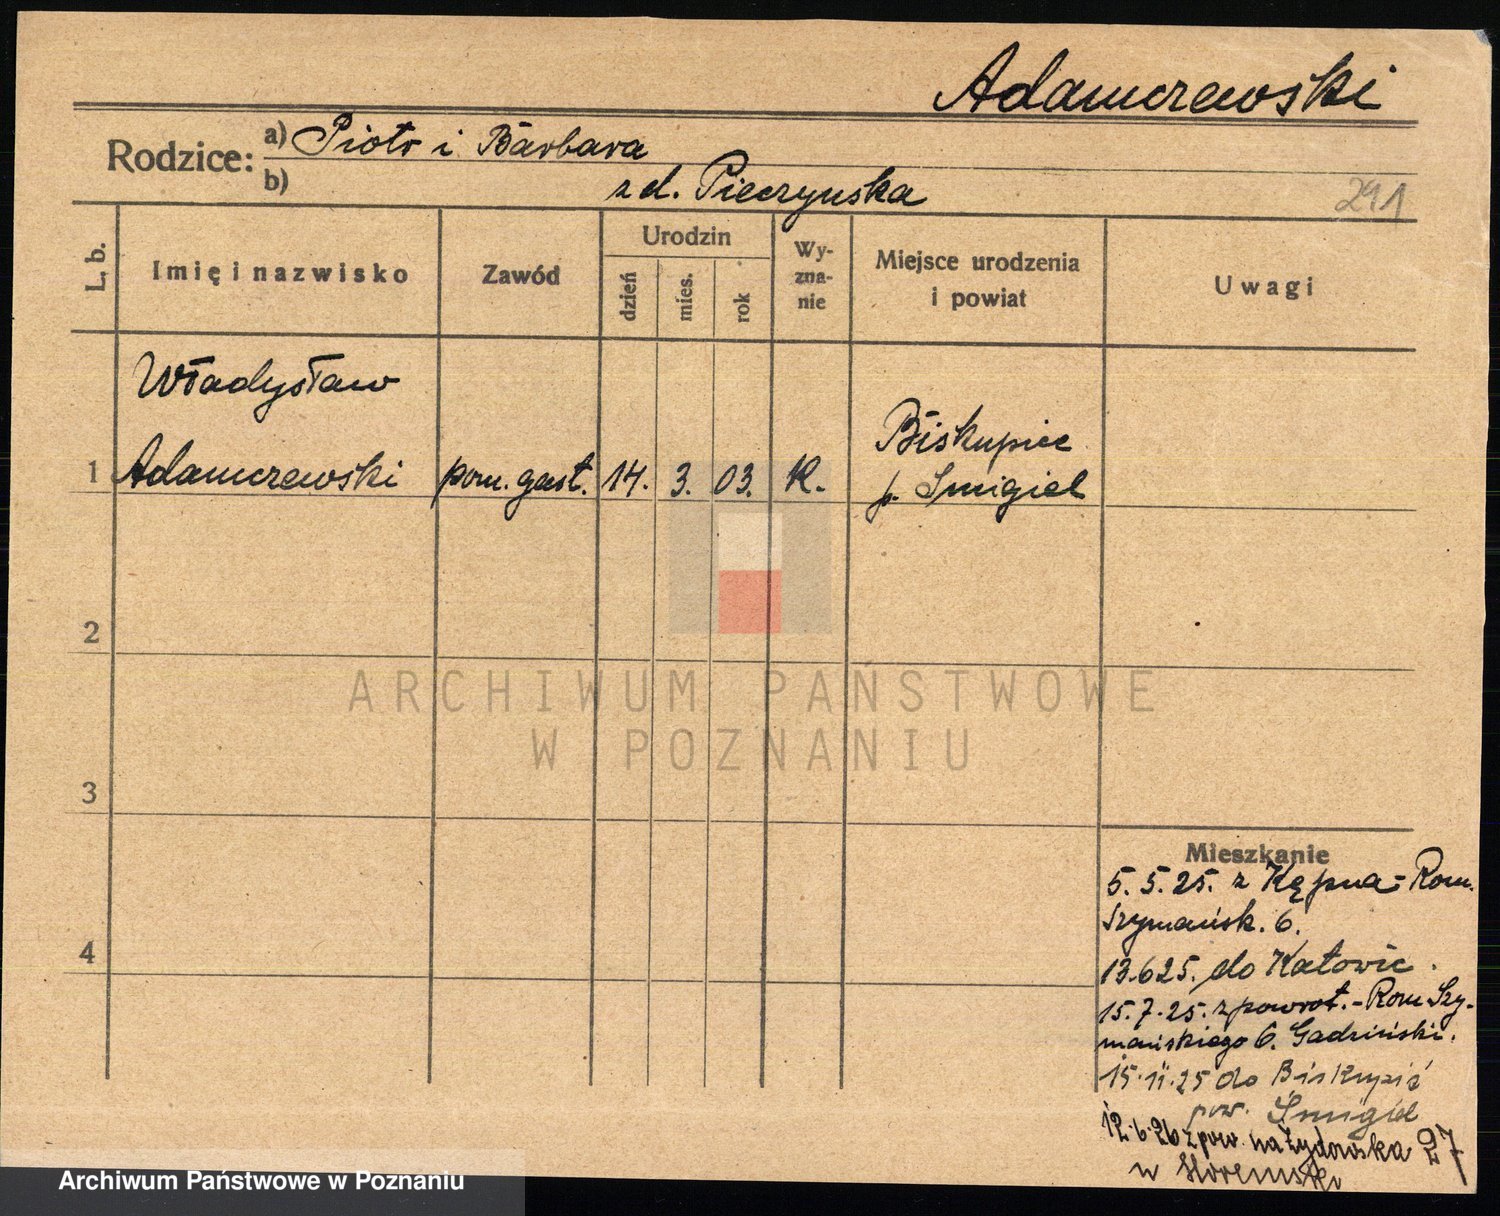 Adamczewski
Rodzice: a) Piotr i Barbara
b) z d. Pieczyńska
291
L. b.
Imię i nazwisko
Zawód
Urodzin
dzień
mies.
rok
Wy-
zna-
nie
Miejsce urodzenia
i powiat
Uwagi
Władysław
1 Adamczewski pom. gast. 14. 3. 03. K. Biskupice
p. Śmigiel
2
3
4
ARCHIWUM PAŃSTWOWE
W POZNANIU
Mieszkanie
5. 5. 25. z Kępna - Rom.
Szymańsk. 6.
13.6 25. do Katowic.
15. 7. 25. z powrot. - Rom Szy-
mańskiego 6. Gadziński.
15. 11. 25 do Biskupic
pow. Śmigiel
12. 6. 26 z pow. na Żydowska 27
w
Archiwum Państwowe w Poznaniu